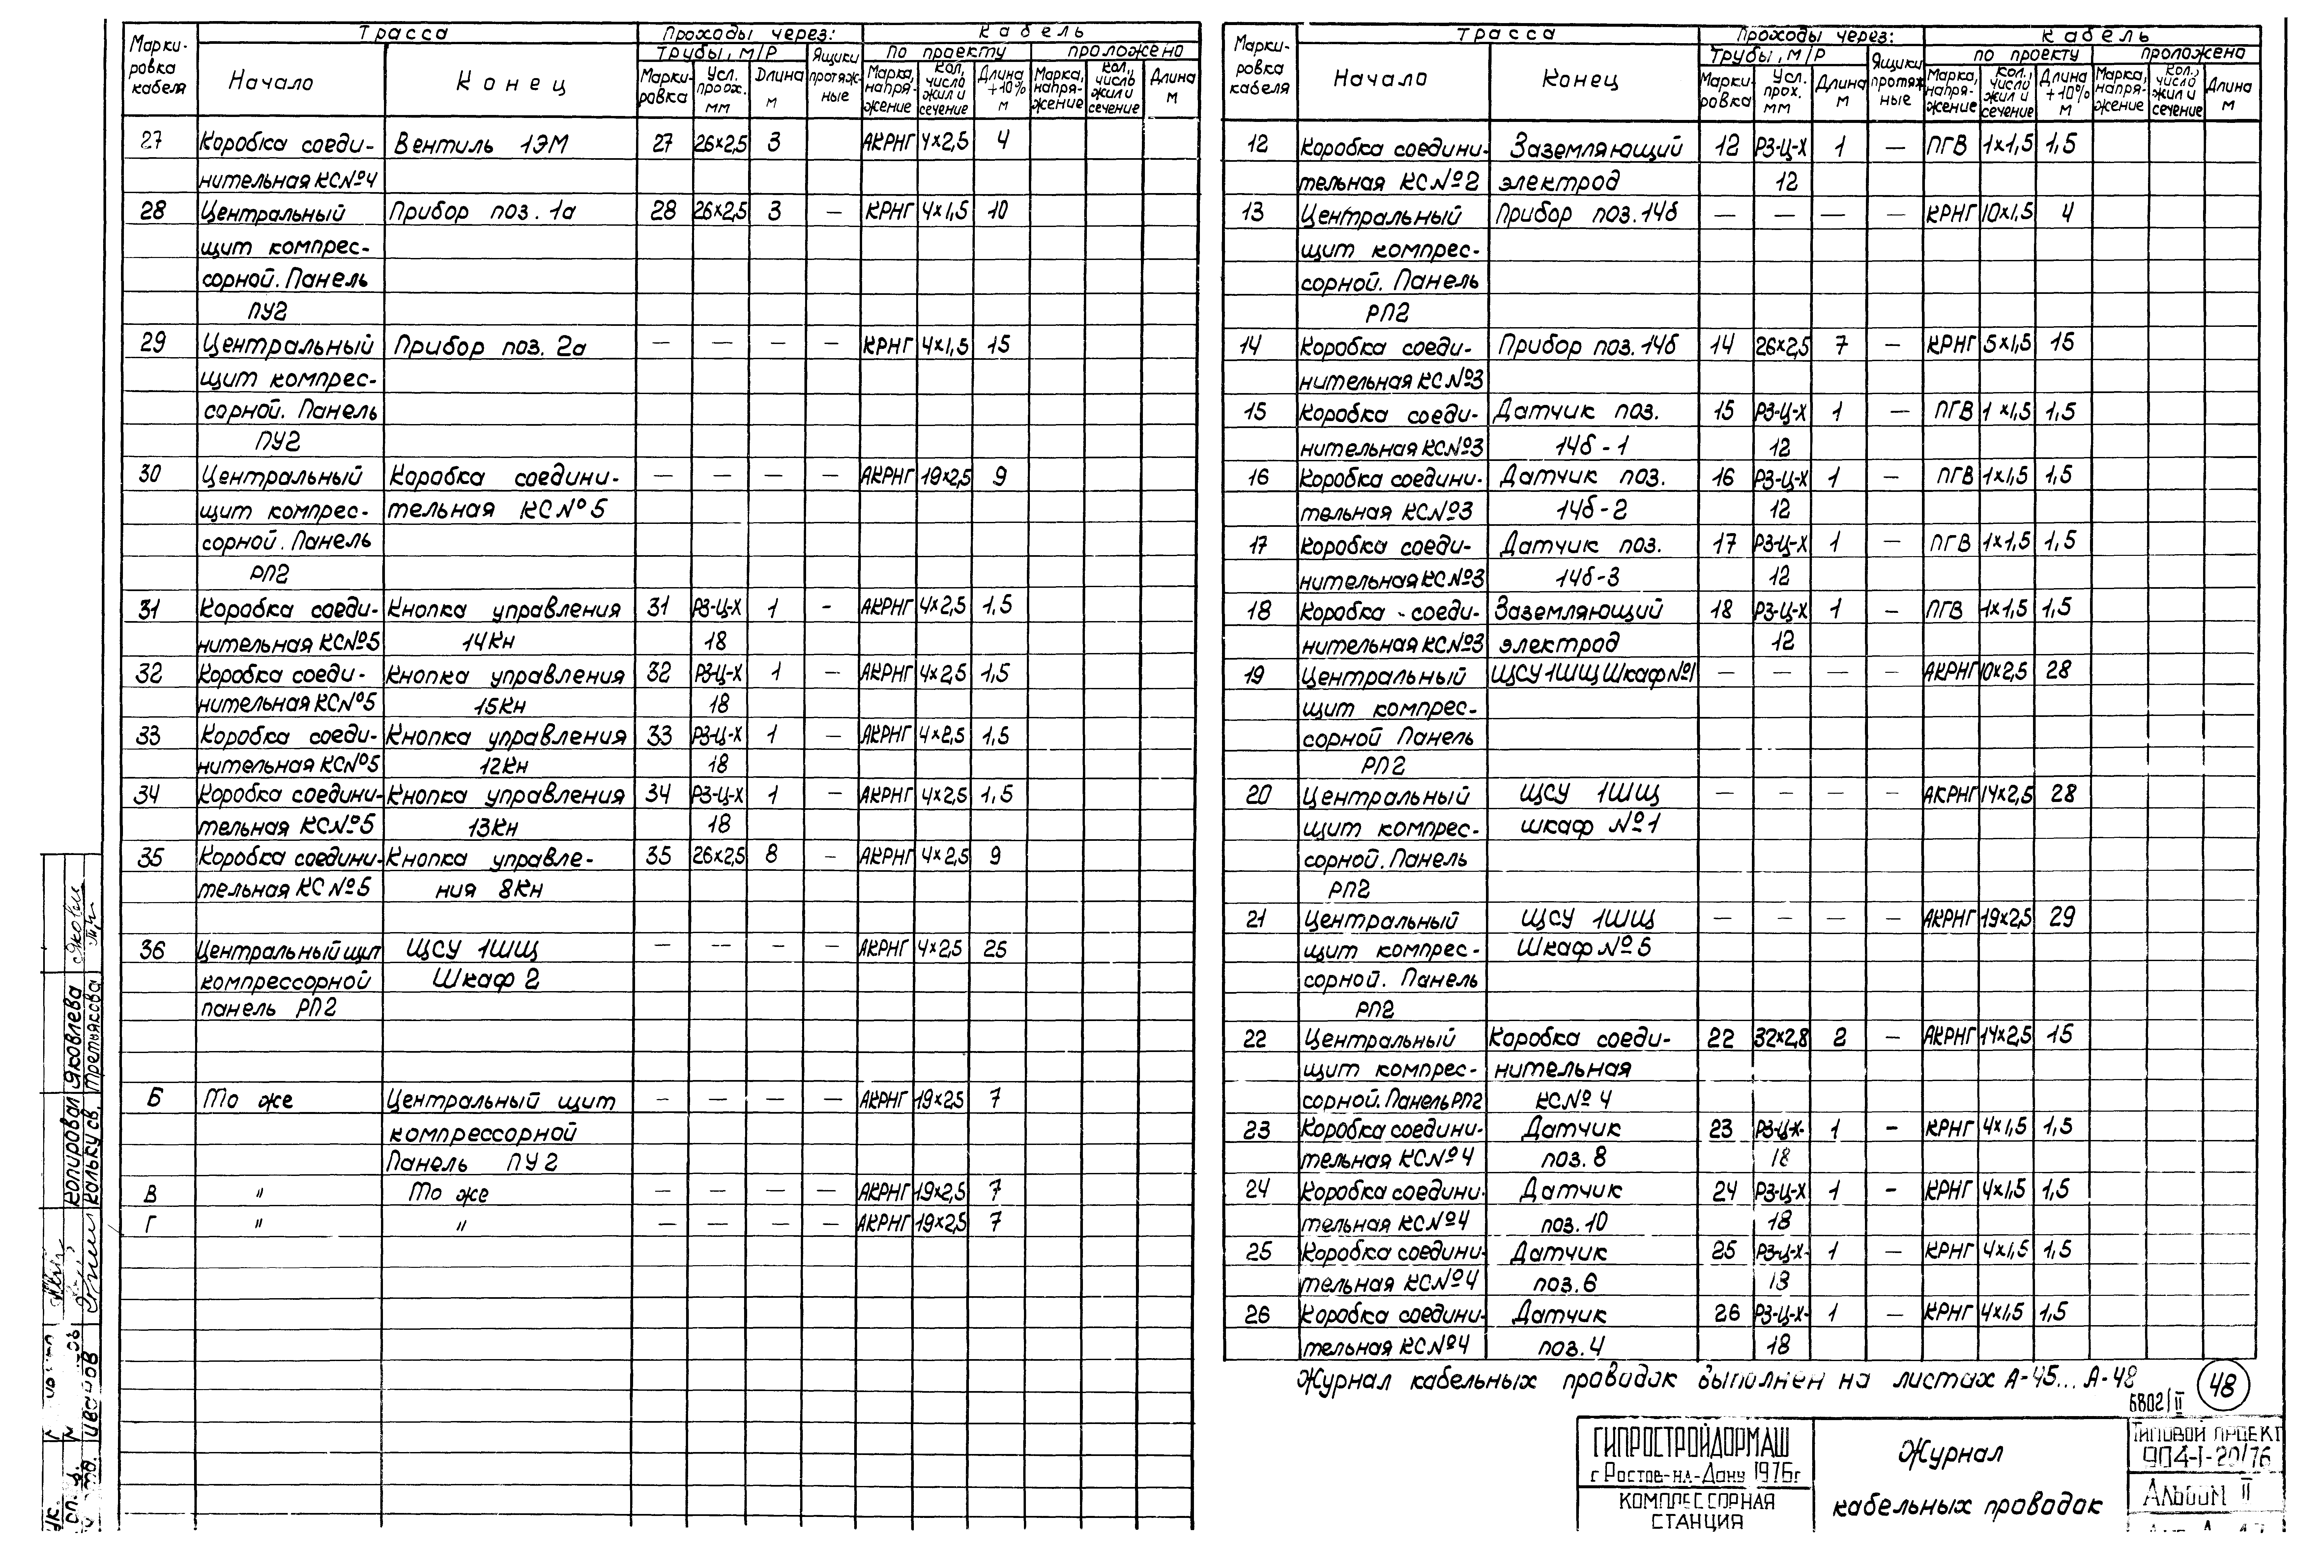 Марки-
ровка
кабеля
Трасса
Начало
Конец
Проходы через:
Трубы, м/Р
Марки-
ровка
Усл.
проох.
мм
Длина
м
Ящики
протяж-
ные
Кабель
по проекту
Марка,
напря-
жение
Кол.,
число
жил и
сечение
Длина
+10%
м
проложено
Марка,
напря-
жение
Кол.,
число
жил и
сечение
Длина
м
27 Коробка соеди- Вентиль 1ЭМ 27 26×2,5 3 АКРНГ 4×2,5 4
нительная КС№4
28 Центральный Прибор поз. 1а 28 26×2,5 3 — КРНГ 4×1,5 10
щит компрес-
сорной. Панель
ПУ2
29 Центральный Прибор поз. 2а — — — — КРНГ 4×1,5 15
щит компрес-
сорной. Панель
ПУ2
30 Центральный Коробка соедини- — — — — АКРНГ 19×2,5 9
щит компрес- тельная КС№5
сорной. Панель
РП2
31 Коробка соеди- Кнопка управления 31 РЗ-Ц-Х 1 - АКРНГ 4×2,5 1,5
нительная КС№5 14Кн 18
32 Коробка соеди- Кнопка управления 32 РЗ-Ц-Х 1 — АКРНГ 4×2,5 1,5
нительная КС№5 15Кн 18
33 Коробка соеди- Кнопка управления 33 РЗ-Ц-Х 1 — АКРНГ 4×2,5 1,5
нительная КС№5 12Кн 18
34 Коробка соедини- Кнопка управления 34 РЗ-Ц-Х 1 — АКРНГ 4×2,5 1,5
тельная КС№5 13Кн 18
35 Коробка соедини- Кнопка управле- 35 26×2,5 8 - АКРНГ 4×2,5 9
тельная КС №5 ния 8Кн
36 Центральный щит ЩСУ 1ШЩ — — — — АКРНГ 4×2,5 25
компрессорной Шкаф 2
панель РП2
Б То же Центральный щит — — — — АКРНГ 19×2,5 7
компрессорной
Панель ПУ2
В " То же — — — — АКРНГ 19×2,5 7
Г " " — — — — АКРНГ 19×2,5 7
Марки-
ровка
кабеля
Трасса
Начало
Конец
Проходы через:
Трубы, м/Р
Марки-
ровка
Усл.
прох.
мм
Длина
м
Ящики
протяж
ные
Кабель
по проекту
Марка,
напря-
жение
Кол.,
число
жил и
сечение
Длина
+10%
м
проложена
Марка,
напря-
жение
Кол.,
число
жил и
сечение
Длина
м
12 Коробка соедини- Заземляющий 12 РЗ-Ц-Х 1 — ПГВ 1×1,5 1,5
тельная КС№2 электрод 12
13 Центральный Прибор поз.14б — — — — КРНГ 10×1,5 4
щит компрес-
сорной. Панель
РП2
14 Коробка соеди- Прибор поз.14б 14 26×2,5 7 — КРНГ 5×1,5 15
нительная КС№3
15 Коробка соеди- Датчик поз. 15 РЗ-Ц-Х 1 — ПГВ 1×1,5 1,5
нительная КС№3 14б-1 12
16 Коробка соедини- Датчик поз. 16 РЗ-Ц-Х 1 — ПГВ 1×1,5 1,5
тельная КС№3 14б-2 12
17 Коробка соеди- Датчик поз. 17 РЗ-Ц-Х 1 — ПГВ 1×1,5 1,5
нительная КС№3 14б-3 12
18 Коробка соеди- Заземляющий 18 РЗ-Ц-Х 1 — ПГВ 1×1,5 1,5
нительная КС№3 электрод 12
19 Центральный ЩСУ 1ШЩ Шкаф №1 — — — — АКРНГ 10×2,5 28
щит компрес-
сорной Панель
РП2
20 Центральный ЩСУ 1ШЩ — — — — АКРНГ 14×2,5 28
щит компрес- шкаф №1
сорной. Панель
РП2
21 Центральный ЩСУ 1ШЩ — — — — АКРНГ 19×2,5 29
щит компрес- Шкаф №5
сорной. Панель
РП2
22 Центральный Коробка соеди- 22 32×2,8 2 — АКРНГ 14×2,5 15
щит компрес- нительная
сорной. Панель РП2 КС№4
23 Коробка соедини- Датчик 23 РЗ-Ц-Х- 1 - КРНГ 4×1,5 1,5
тельная КС№4 поз. 8 18
24 Коробка соедини- Датчик 24 РЗ-Ц-Х 1 - КРНГ 4×1,5 1,5
тельная КС№4 поз.10 18
25 Коробка соедини- Датчик 25 РЗ-Ц-Х- 1 — КРНГ 4×1,5 1,5
тельная КС№4 поз.6 13
26 Коробка соедини- Датчик 26 РЗ-Ц-Х- 1 — КРНГ 4×1,5 1,5
тельная КС№4 поз.4 18
Журнал кабельных проводок выполнен на листах А-45... А-48
48
6802/II
ГИПРОСТРОЙДОРМАШ
г Ростов-на-Дону 1976г
КОМПРЕССОРНАЯ
СТАНЦИЯ
Журнал
кабельных проводок
Типовой проект
904-1-20/76
Альбом II
Копировал Яковлева
Кальку св. Третьякова
Иванов